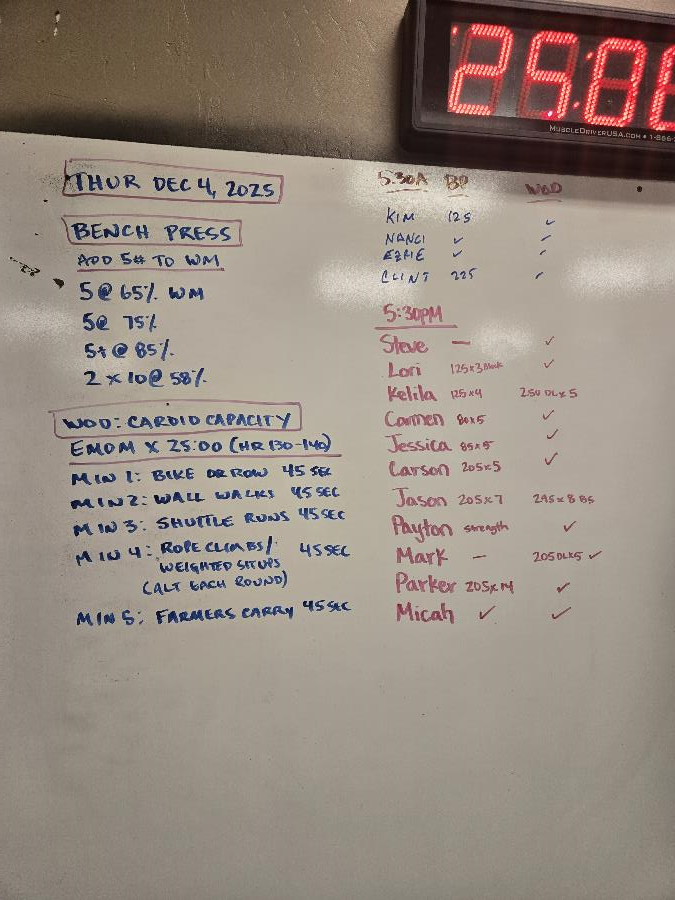 25:0
MUSCLEDRIVERUSA.COM • 1-866-
THUR DEC 4, 2025
BENCH PRESS
ADD 5# TO WM
5@ 65% WM
5@ 75%
5+ @ 85%
2 x 10@ 58%
WOD: CARDIO CAPACITY
EMOM X 25:00 (HR 130-140)
MIN 1: BIKE OR ROW 45 SEC
MIN 2: WALL WALKS 45 SEC
MIN 3: SHUTTLE RUNS 45 SEC
MIN 4: ROPE CLIMBS/ 45 SEC
WEIGHTED SITUPS
(ALT EACH ROUND)
MIN 5: FARMERS CARRY 45 SEC
5:30A BP WOD
KIM 125 ✓
NANCI ✓ ✓
✓ ✓
CLINT 225 ✓
5:30PM
Steve — ✓
Lori 125x3 ✓
Kelila 125x4 250 DLx5
Carmen 80x5 ✓
Jessica 85x5 ✓
Carson 205x5 ✓
Jason 205x7 295x8 BS
Payton strength ✓
Mark — 205DLx5 ✓
Parker 205x14 ✓
Micah ✓ ✓